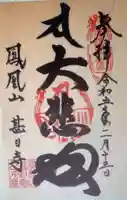 奉拝 令和五年二月十三日
大悲殿
鳳凰山 甚目寺